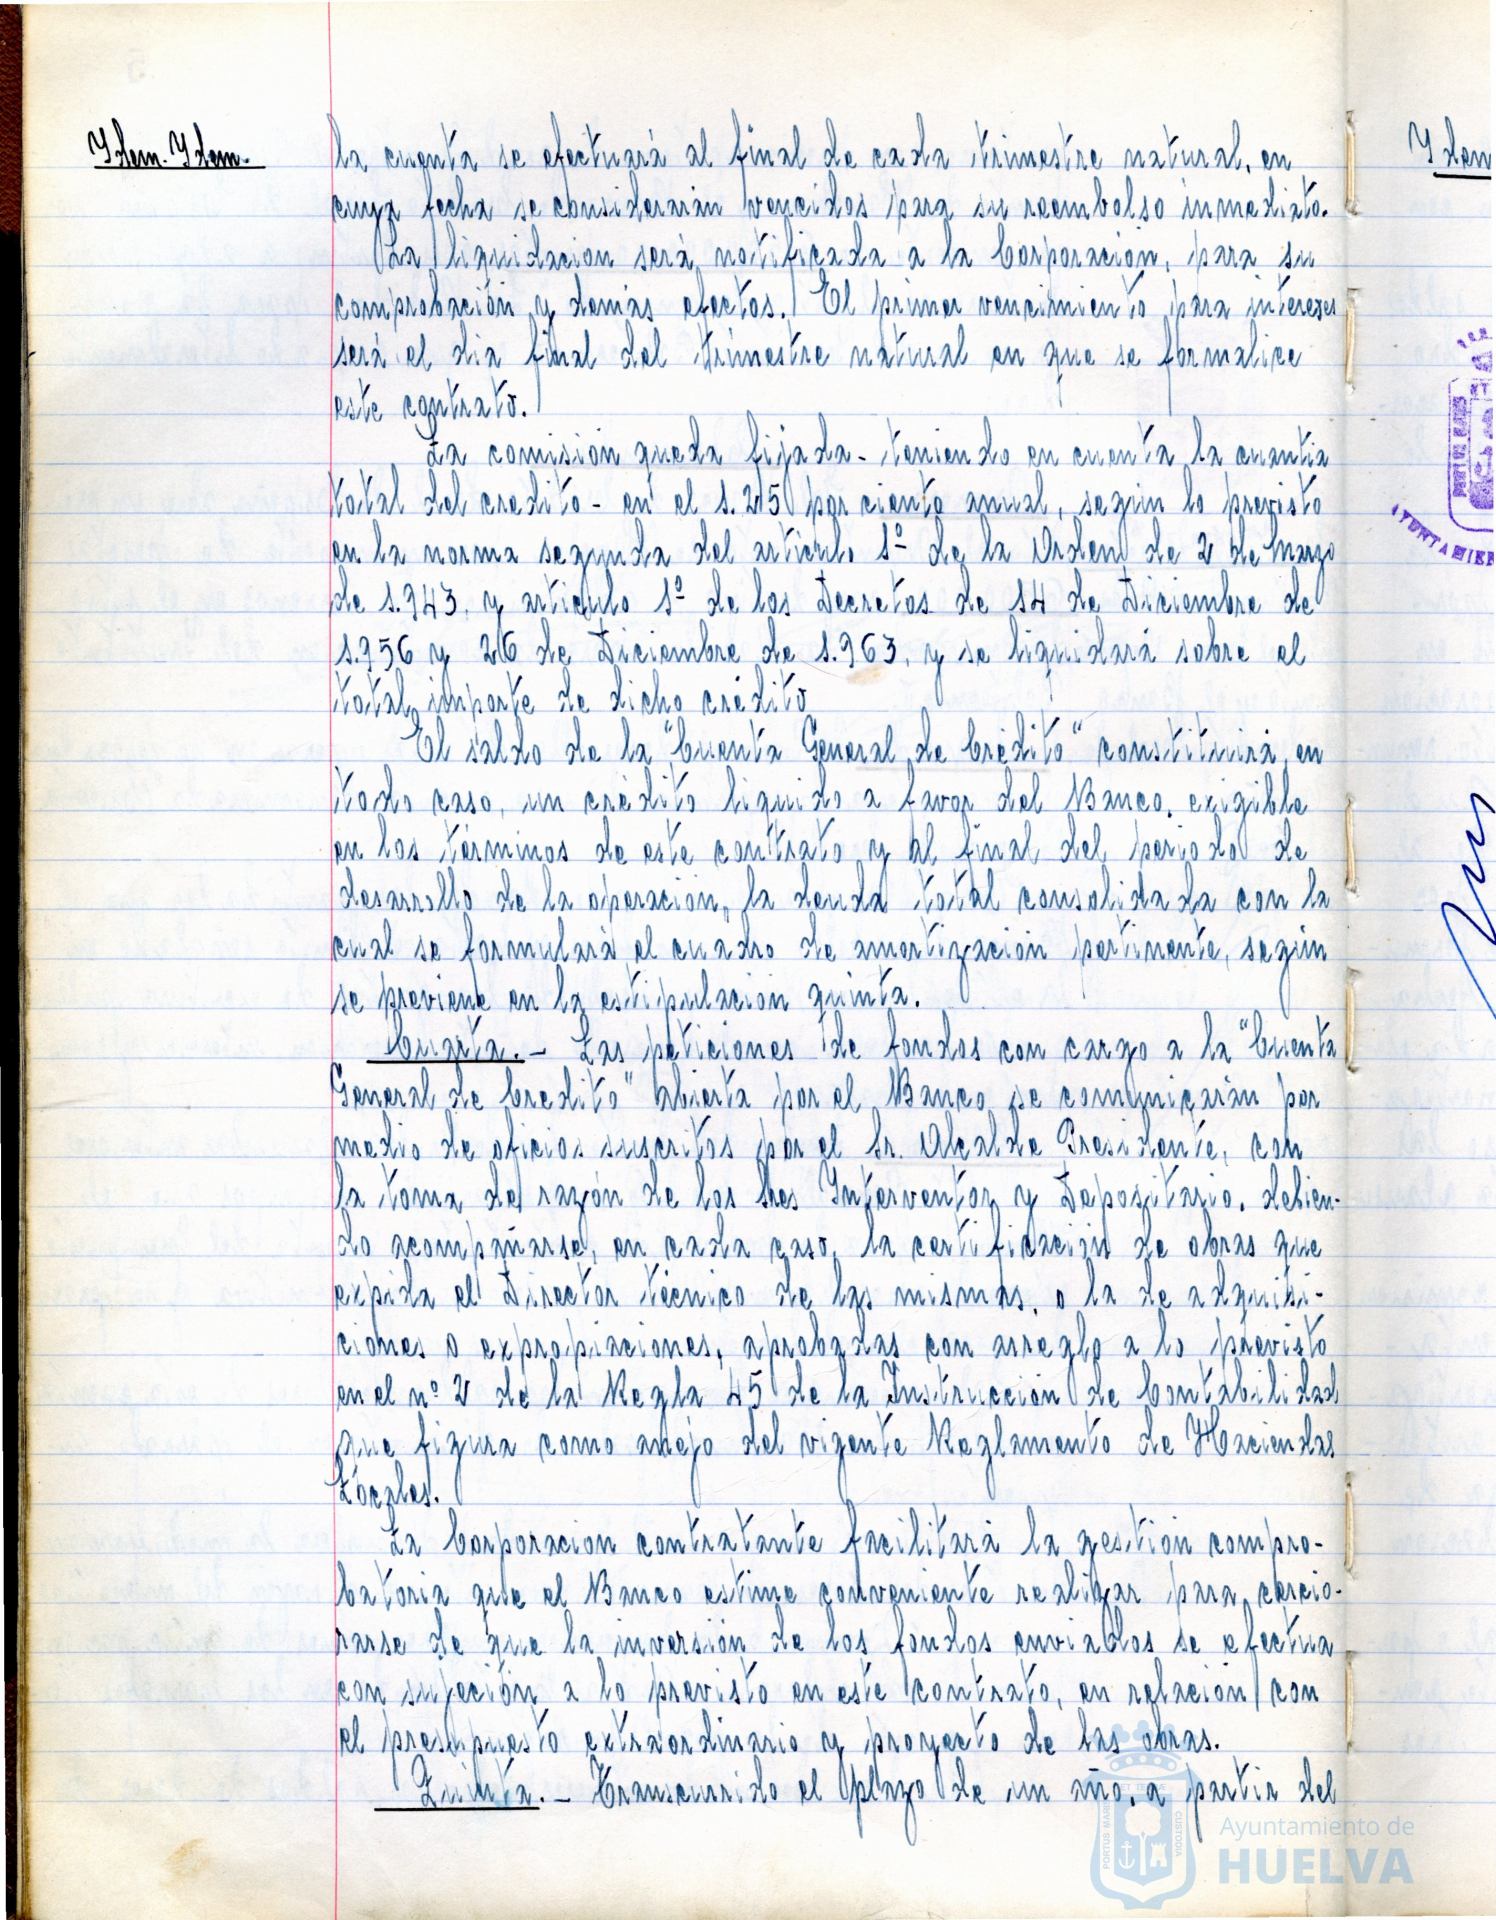 Ydem. Ydem.
la cuenta se efectuará al final de cada trimestre natural, en
cuya fecha se considerarán vencidos para su reembolso inmediato.
La liquidación será notificada a la Corporación, para su
comprobación y demás efectos. El primer vencimiento para intereses
será el dia final del trimestre natural en que se formalice
este contrato.
La comisión queda fijada - teniendo en cuenta la cuantia
total del credito - en el 1.25 por ciento anual, según lo previsto
en la norma segunda del articulo 1º de la Orden de 2 de Marzo
de 1.943, y articulo 1º de los Decretos de 14 de Diciembre de
1.956 y 26 de Diciembre de 1.963, y se liquidará sobre el
total importe de dicho crédito
El saldo de la "Cuenta General de Crédito" constituirá, en
todo caso, un crédito liquido a favor del Banco, exigible
en los términos de este contrato y al final del periodo de
desarrollo de la operación, la deuda total consolidada con la
cual se formulará el cuadro de amortización pertinente, según
se previene en la estipulación quinta.
Cuarta. - Las peticiones de fondos con cargo a la "Cuenta
General de Credito" abierta por el Banco se comunicarán por
medio de oficios suscritos por el Sr. Alcalde Presidente, con
la toma de razón de los Sres Interventor y Depositario, debien-
do acompañarse, en cada caso, la certificación de obras que
expida el Director técnico de las mismas, o la de adquisi-
ciones o expropiaciones, aprobadas con arreglo a lo previsto
en el nº 2 de la Regla 45 de la Instrucción de Contabilidad
que figura como anejo del vigente Reglamento de Haciendas
Locales.
La Corporación contratante facilitará la gestión compro-
batoria que el Banco estime conveniente realizar para cercio-
rarse de que la inversión de los fondos enviados se efectua
con sujeción a lo previsto en este contrato, en relación con
el presupuesto extraordinario y proyecto de las obras.
Quinta. - Transcurrido el plazo de un año, a partir del
Ydem
AYUNTAMIEN
PORTUS MARIS
CUSTODIA
Ayuntamiento de
HUELVA